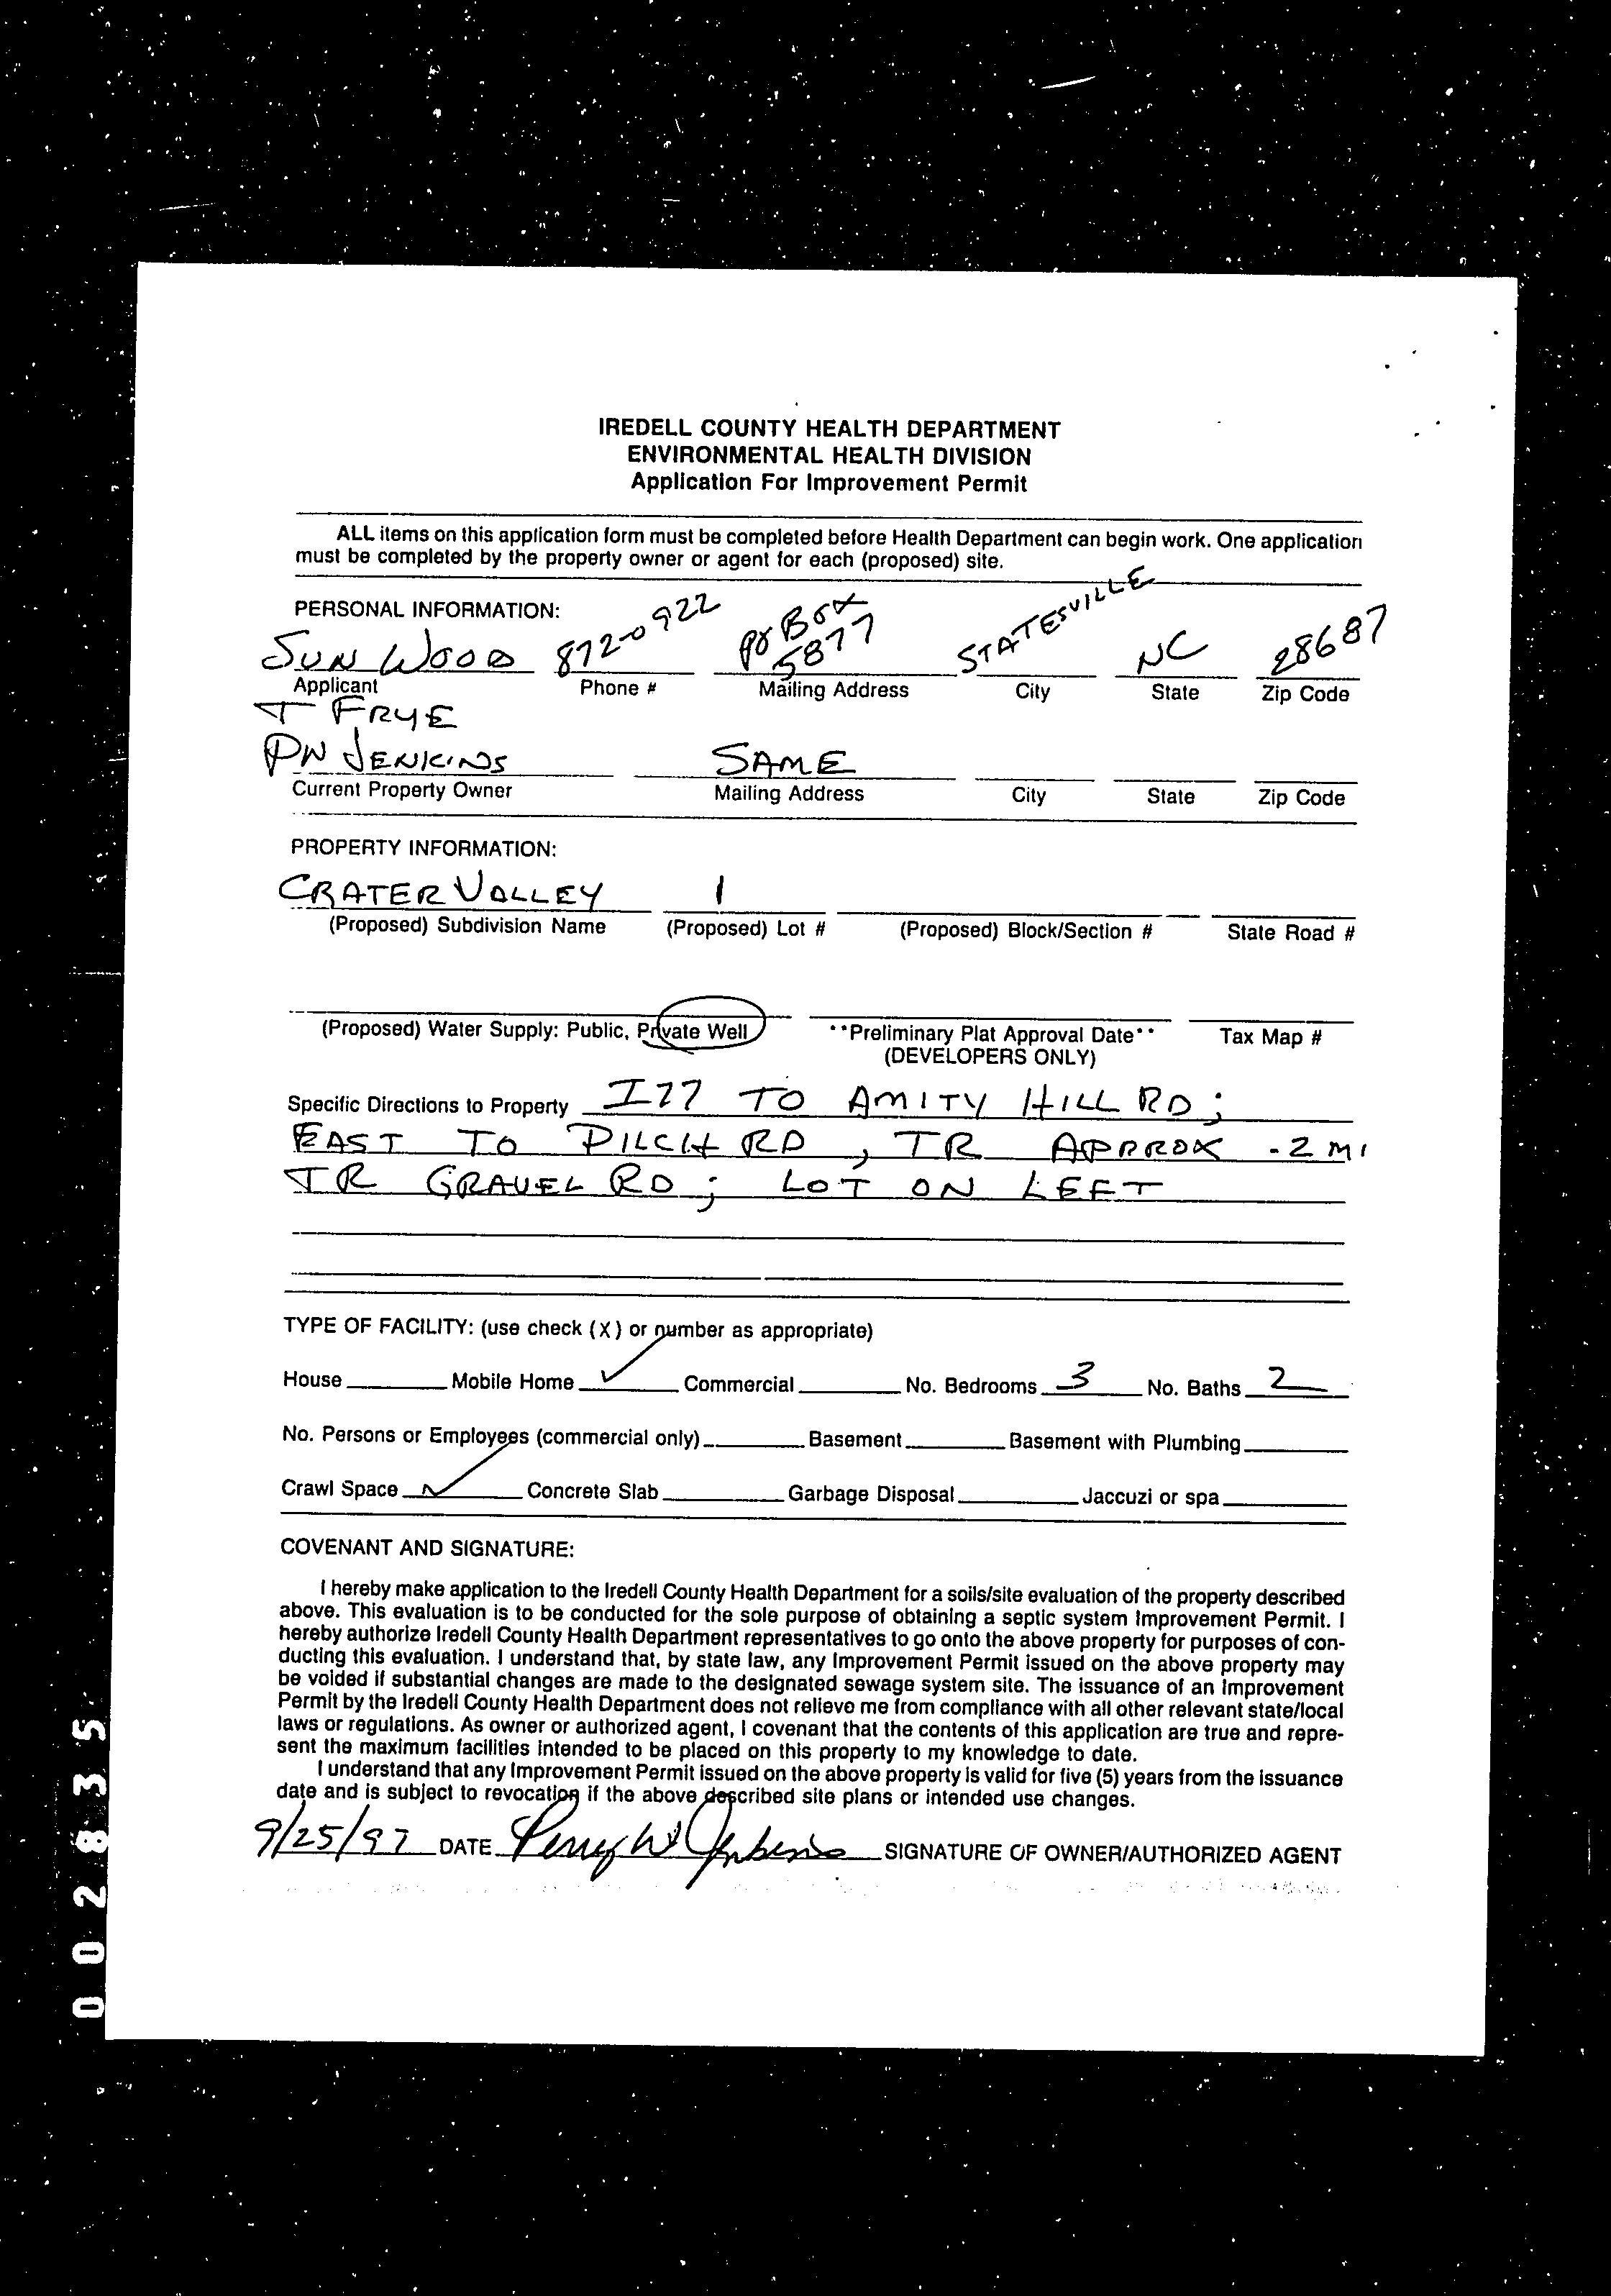 IREDELL COUNTY HEALTH DEPARTMENT
ENVIRONMENTAL HEALTH DIVISION
Application For Improvement Permit
ALL items on this application form must be completed before Health Department can begin work. One application
must be completed by the property owner or agent for each (proposed) site.
PERSONAL INFORMATION:
SUN WOOD 872-0922 PO BOX 5877 STATESVILLE NC 28687
Applicant Phone # Mailing Address City State Zip Code
T FRYE
PW JENKINS SAME
Current Property Owner Mailing Address City State Zip Code
PROPERTY INFORMATION:
CRATER VALLEY 1
(Proposed) Subdivision Name (Proposed) Lot # (Proposed) Block/Section # State Road #
(Proposed) Water Supply: Public, Private Well **Preliminary Plat Approval Date** Tax Map #
(DEVELOPERS ONLY)
Specific Directions to Property I77 TO AMITY HILL RD;
EAST TO PILCH RD, TR APPROX .2 MI
TR GRAVEL RD; LOT ON LEFT
TYPE OF FACILITY: (use check (X) or number as appropriate)
House Mobile Home ✓ Commercial No. Bedrooms 3 No. Baths 2
No. Persons or Employees (commercial only) Basement Basement with Plumbing
Crawl Space ✓ Concrete Slab Garbage Disposal Jaccuzi or spa
COVENANT AND SIGNATURE:
I hereby make application to the Iredell County Health Department for a soils/site evaluation of the property described
above. This evaluation is to be conducted for the sole purpose of obtaining a septic system Improvement Permit. I
hereby authorize Iredell County Health Department representatives to go onto the above property for purposes of con-
ducting this evaluation. I understand that, by state law, any Improvement Permit issued on the above property may
be voided if substantial changes are made to the designated sewage system site. The issuance of an Improvement
Permit by the Iredell County Health Department does not relieve me from compliance with all other relevant state/local
laws or regulations. As owner or authorized agent, I covenant that the contents of this application are true and repre-
sent the maximum facilities intended to be placed on this property to my knowledge to date.
I understand that any Improvement Permit issued on the above property is valid for five (5) years from the issuance
date and is subject to revocation if the above described site plans or intended use changes.
9/25/97 DATE Perry W Jenkins SIGNATURE OF OWNER/AUTHORIZED AGENT
002835